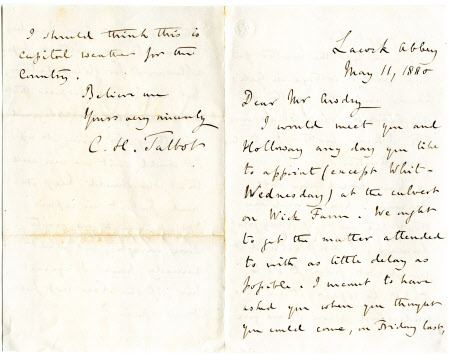 Lacock Abbey
May 11, 1880
Dear Mr Awdry
I would meet you and
Holloway any day you like
to appoint (except Whit-
Wednesday) at the culvert
on Wick Farm. We ought
to get the matter attended
to with as little delay as
possible. I meant to have
asked you when you thought
you could come, on Friday last,
I should think this is
capital weather for the
Country.
Believe me
Yours very sincerely
C. H. Talbot